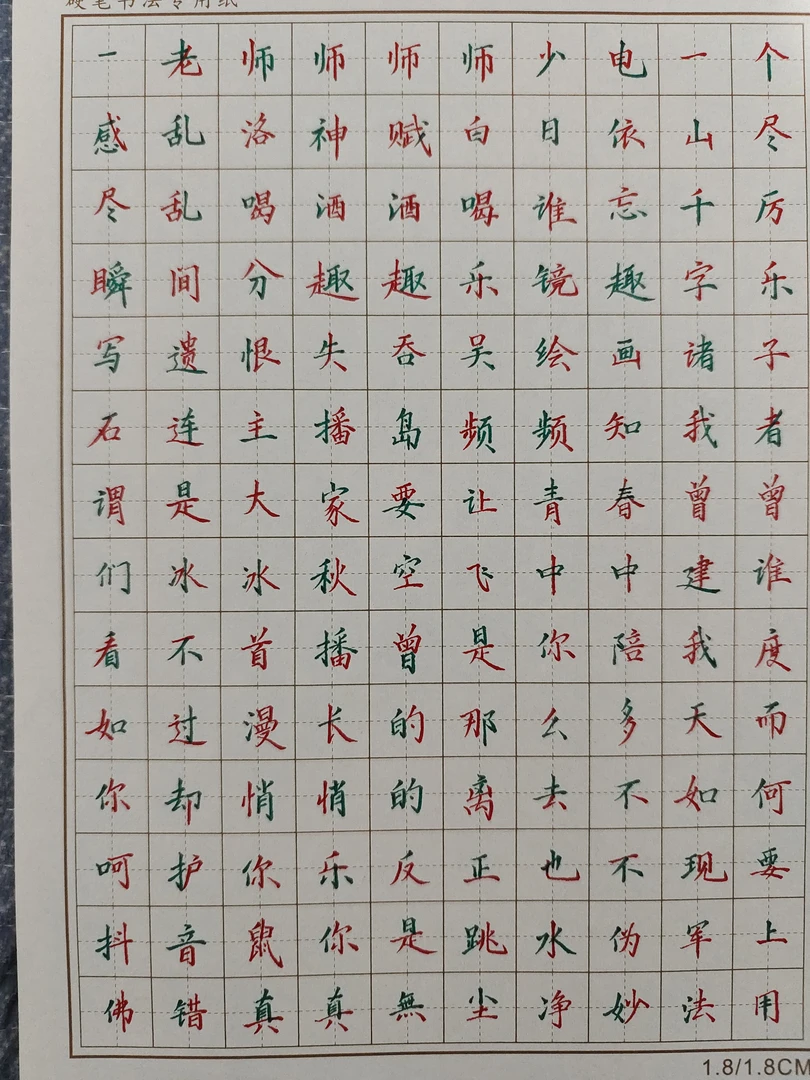 硬笔书法专用纸
一老师师师师少电一个
感乱洛神赋白日依山尽
尽乱喝酒酒喝谁忘千厉
瞬间分趣趣乐镜趣字乐
写遗恨失吞吴绘画诸子
石连主播岛频频知我者
谓是大家要让青春曾曾
们冰冰秋空飞中中建谁
看不首播曾是你陪我度
如过漫长的那么多天而
你却悄悄的离去不如何
呵护你乐反正也不现要
抖音鼠你是跳水伪军上
佛错真真無尘净妙法用
1.8/1.8CM